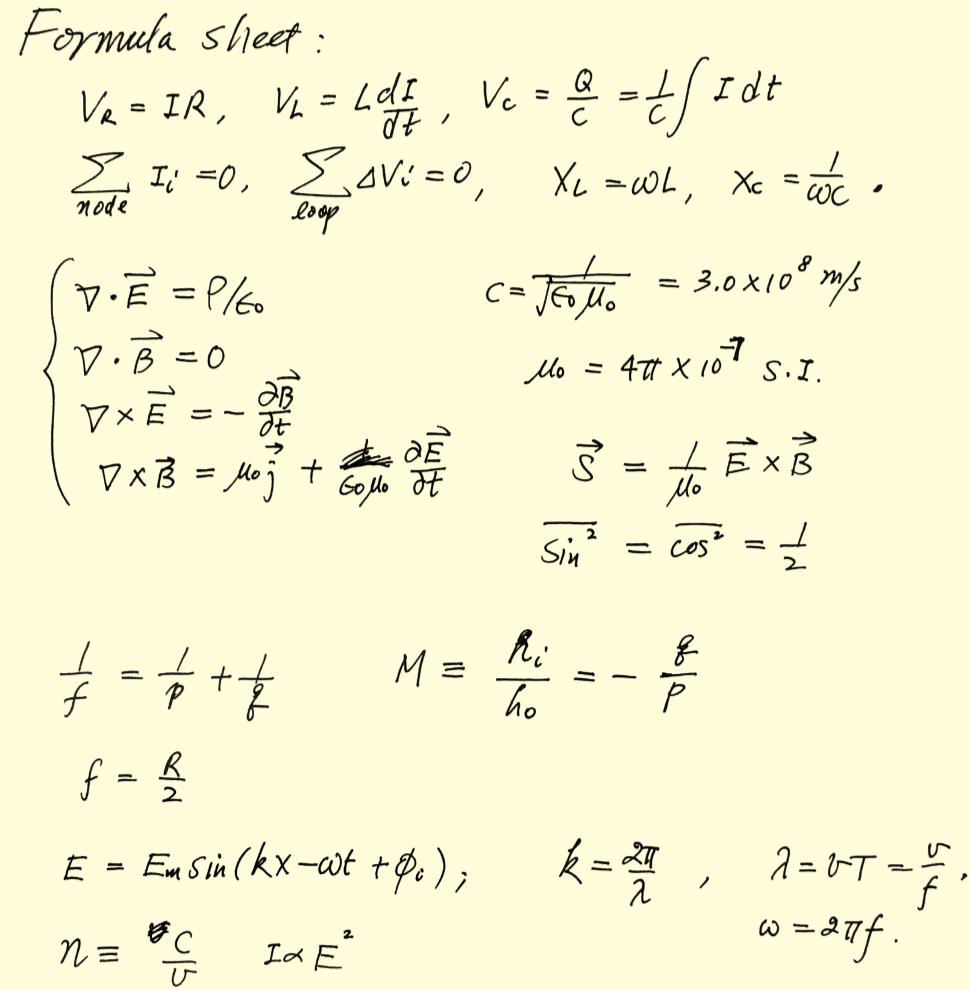 Formula sheet :
V_R = IR, V_L = L dI/dt , V_C = Q/C = 1/C ∫ I dt
∑_node I_i = 0, ∑_loop ΔV_i = 0, X_L = ωL, X_C = 1/ωC .
∇ · E⃗ = ρ/ε₀
∇ · B⃗ = 0
∇ × E⃗ = - ∂B⃗/∂t
∇ × B⃗ = μ₀ j⃗ + ε₀μ₀ ∂E⃗/∂t
c = 1/√(ε₀ μ₀) = 3.0 × 10⁸ m/s
μ₀ = 4π × 10⁻⁷ S.I.
S⃗ = 1/μ₀ E⃗ × B⃗
s̅i̅n̅² = c̅o̅s̅² = 1/2
1/f = 1/p + 1/q M ≡ h_i/h_o = - q/p
f = R/2
E = E_m sin(kx - ωt + ϕ_c); k = 2π/λ , λ = vT = v/f .
n ≡ c/v I ∝ E² ω = 2πf .